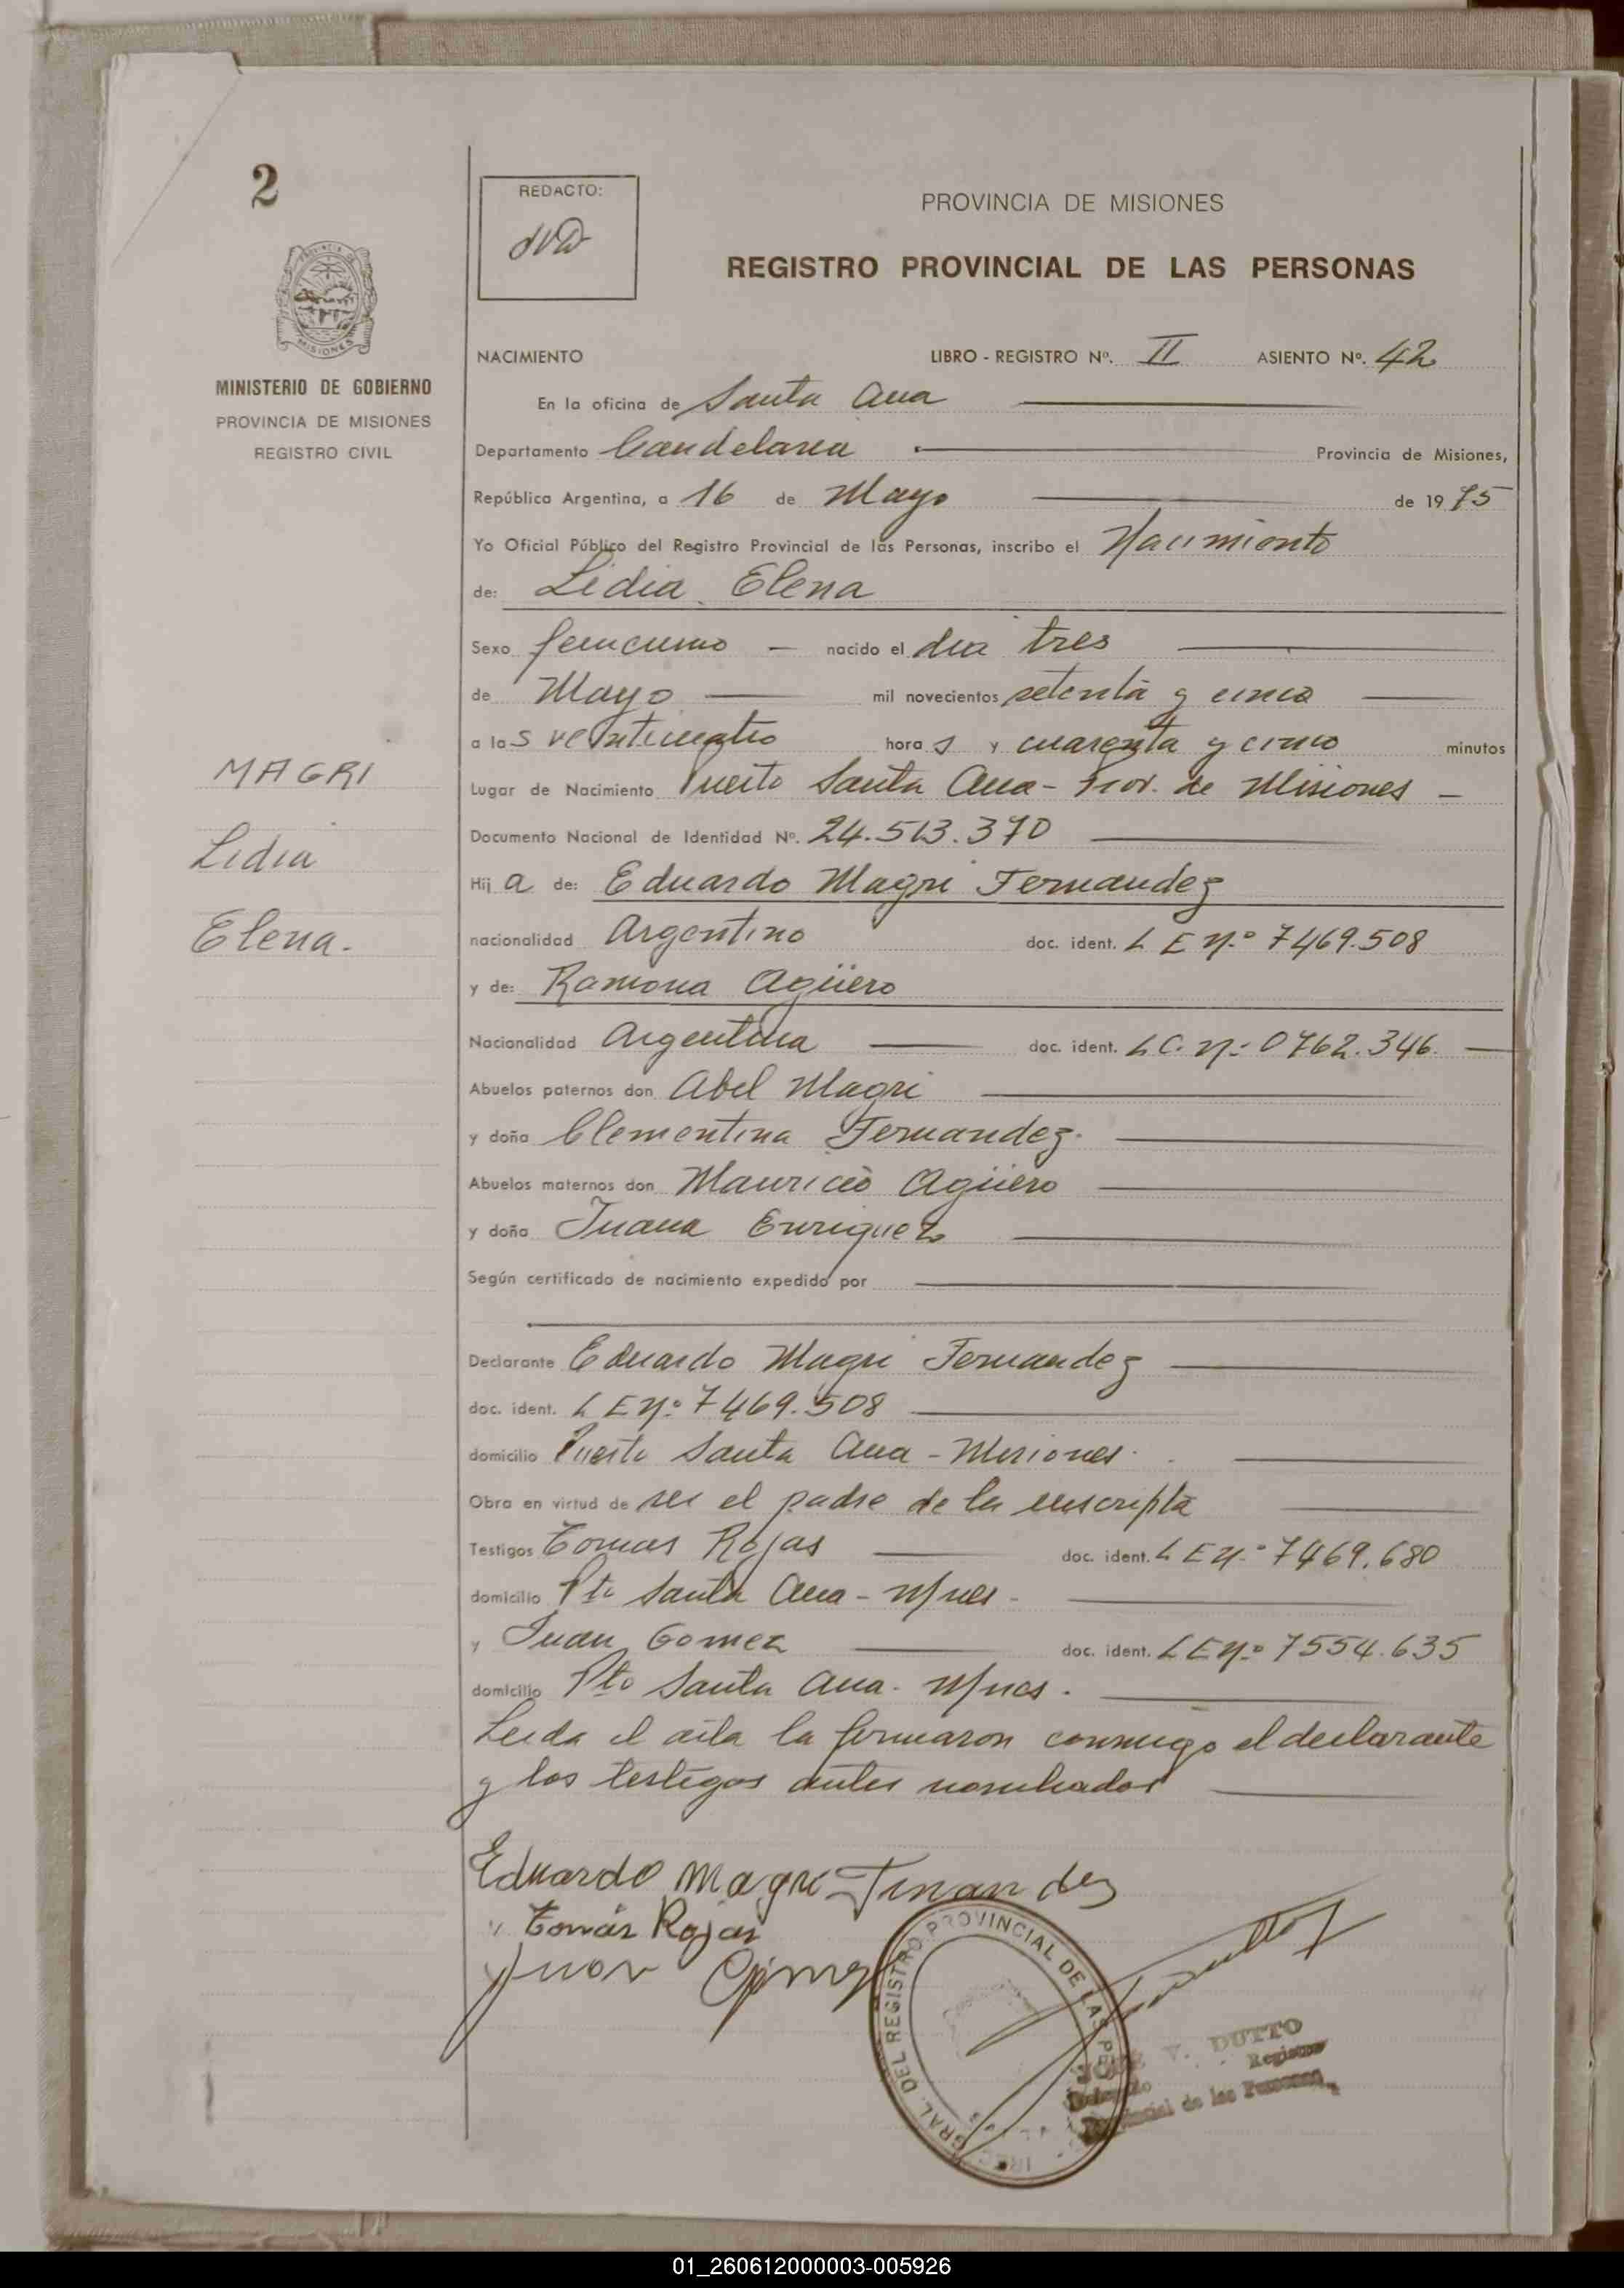 2
REDACTO:
PROVINCIA DE MISIONES
REGISTRO PROVINCIAL DE LAS PERSONAS
MISIONES
MINISTERIO DE GOBIERNO
PROVINCIA DE MISIONES
REGISTRO CIVIL
NACIMIENTO LIBRO - REGISTRO Nº. II ASIENTO Nº. 42
En la oficina de Santa Ana
Departamento Candelaria Provincia de Misiones,
República Argentina, a 16 de Mayo de 1975
Yo Oficial Público del Registro Provincial de las Personas, inscribo el Nacimiento
de: Lidia Elena
Sexo femenino - nacido el dia tres
de Mayo mil novecientos setenta y cinco
a las veinticuatro horas y cuarenta y cinco minutos
Lugar de Nacimiento Puerto Santa Ana - Prov. de Misiones -
Documento Nacional de Identidad Nº. 24.513.370
Hija de: Eduardo Magri Fernandez
nacionalidad Argentino doc. ident. L E Nº 7469.508
y de: Ramona Agüero
Nacionalidad Argentina doc. ident. L C. Nº 0762.346.
Abuelos paternos don Abel Magri
y doña Clementina Fernandez.
Abuelos maternos don Mauricio Agüero
y doña Juana Enriquez
Según certificado de nacimiento expedido por
Declarante Eduardo Magri Fernandez
doc. ident. L E Nº 7469.508
domicilio Puerto Santa Ana - Misiones.
Obra en virtud de ser el padre de la inscripta
Testigos Tomas Rojas doc. ident. L E Nº 7469.680
domicilio Pto Santa Ana - M/nes -
y Juan Gomez doc. ident. L E Nº 7554.635
domicilio Pto Santa Ana - M/nes.
Leida el acta la firmaron conmigo el declarante
y los testigos antes nombrados
MAGRI
Lidia
Elena.
Eduardo Magri Fernandez
Tomás Rojas
Juan Gómez
GRAL. DEL REGISTRO PROVINCIAL DE LAS PE
V. DUTTO
Registro
Provincial de las Personas
01_260612000003-005926